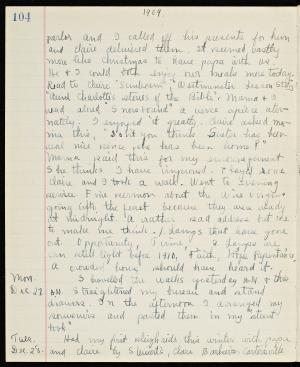 104 1909.
parlor and I called off his presents for him
and Claire delivered them. It seemed vastly
more like Christmas to have papa with us.
He & I could both enjoy our meals more today.
Read to Claire "Sunbonnet" & Westminster Lesson Story
"Aunt Charlotte's stories of the Bible." Mama & I
read aloud "Snowbound" verse and verse alter-
nately. I enjoyed it greatly. Claire asked ma-
ma this, "Don't you think Sister has been
real nice since she has been home?"
Mama said this for my encouragement
She thinks I have improved. Papa,
Claire and I took a walk. Went to Evening
service. Fine sermon about the Wise Virgins
going with the lamps because they were ready
at midnight. A rather sad address but one
to make me think. lamps that have gone
out. Opportunity, Time, & lamps we
can still light before 1910, Faith, Hope, Repentance,
a crowded house should have heard it.
Mon. I shoveled the walks yesterday and to-day
Dec 27 straightened my bureau and stand
drawers. In the afternoon I arranged my
souvenirs and pasted them in my "stunt
book"
Tues. Had my first sleighride this winter with papa
Dec. 28. and Claire by Stewarts, Clare Barbers,